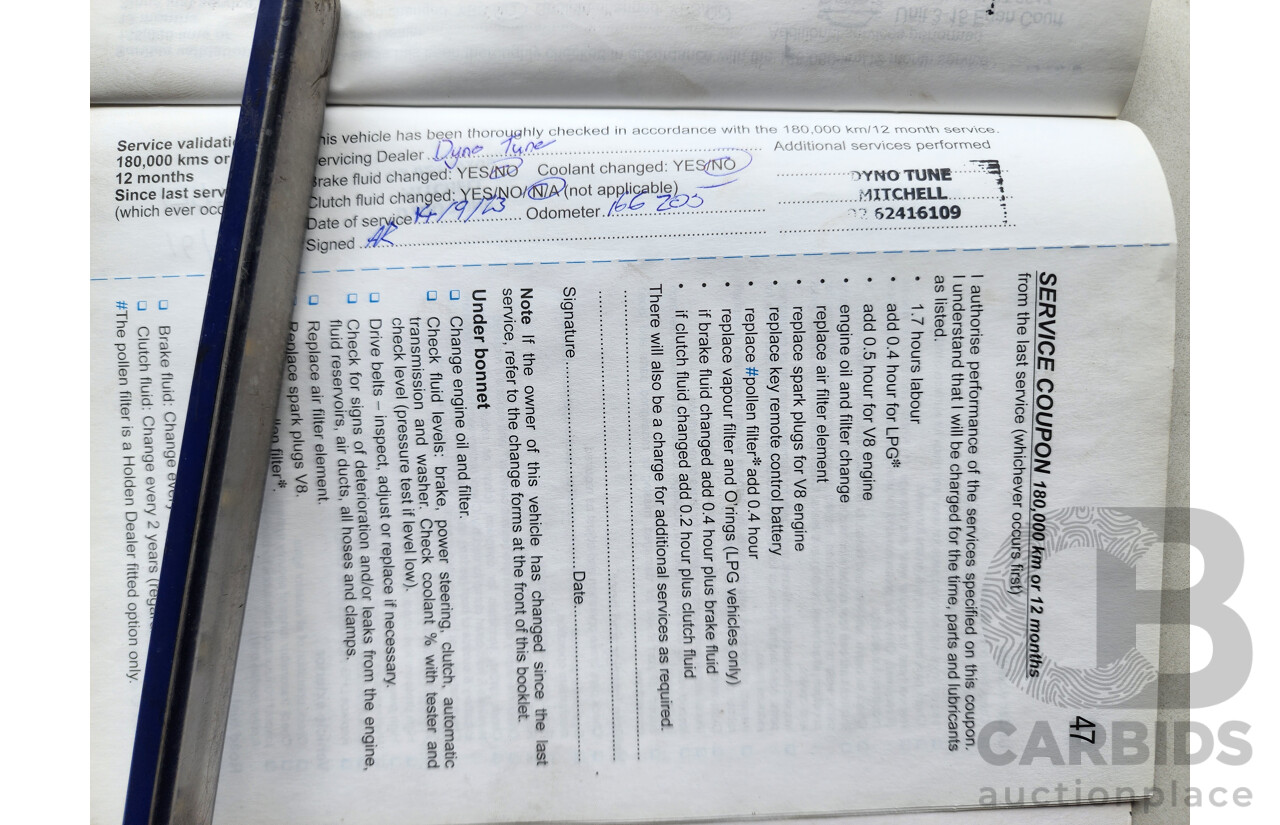 Unit 3-16 E an Court
Service validati
180,000 kms or
12 months
Since last serv
(which ever occ
his vehicle has been thoroughly checked in accordance with the 180,000 km/12 month service.
ervicing Dealer Dyno Tune
Additional services performed
rake fluid changed: YES/NO Coolant changed: YES/NO
Clutch fluid changed: YES/NO/N/A (not applicable)
Date of service 14/9/23 Odometer 166 205
Signed
DYNO TUNE
MITCHELL
02 62416109
47
SERVICE COUPON 180,000 km or 12 months
from the last service (whichever occurs first)
I authorise performance of the services specified on this coupon.
I understand that I will be charged for the time, parts and lubricants
as listed.
• 1.7 hours labour
• add 0.4 hour for LPG*
• add 0.5 hour for V8 engine
• engine oil and filter change
• replace air filter element
• replace spark plugs for V8 engine
• replace key remote control battery
• replace #pollen filter* add 0.4 hour
• replace vapour filter and O'rings (LPG vehicles only)
• if brake fluid changed add 0.4 hour plus brake fluid
• if clutch fluid changed add 0.2 hour plus clutch fluid
There will also be a charge for additional services as required.
Signature Date
Note If the owner of this vehicle has changed since the last
service, refer to the change forms at the front of this booklet.
Under bonnet
❑ Change engine oil and filter.
❑ Check fluid levels: brake, power steering, clutch, automatic
transmission and washer. Check coolant % with tester and
check level (pressure test if level low).
❑ Drive belts – inspect, adjust or replace if necessary.
❑ Check for signs of deterioration and/or leaks from the engine,
fluid reservoirs, air ducts, all hoses and clamps.
❑ Replace air filter element.
Replace spark plugs V8.
llen filter*.
❑ Brake fluid: Change every
❑ Clutch fluid: Change every 2 years (regar
#The pollen filter is a Holden Dealer fitted option only.
CARBIDS
auctionplace